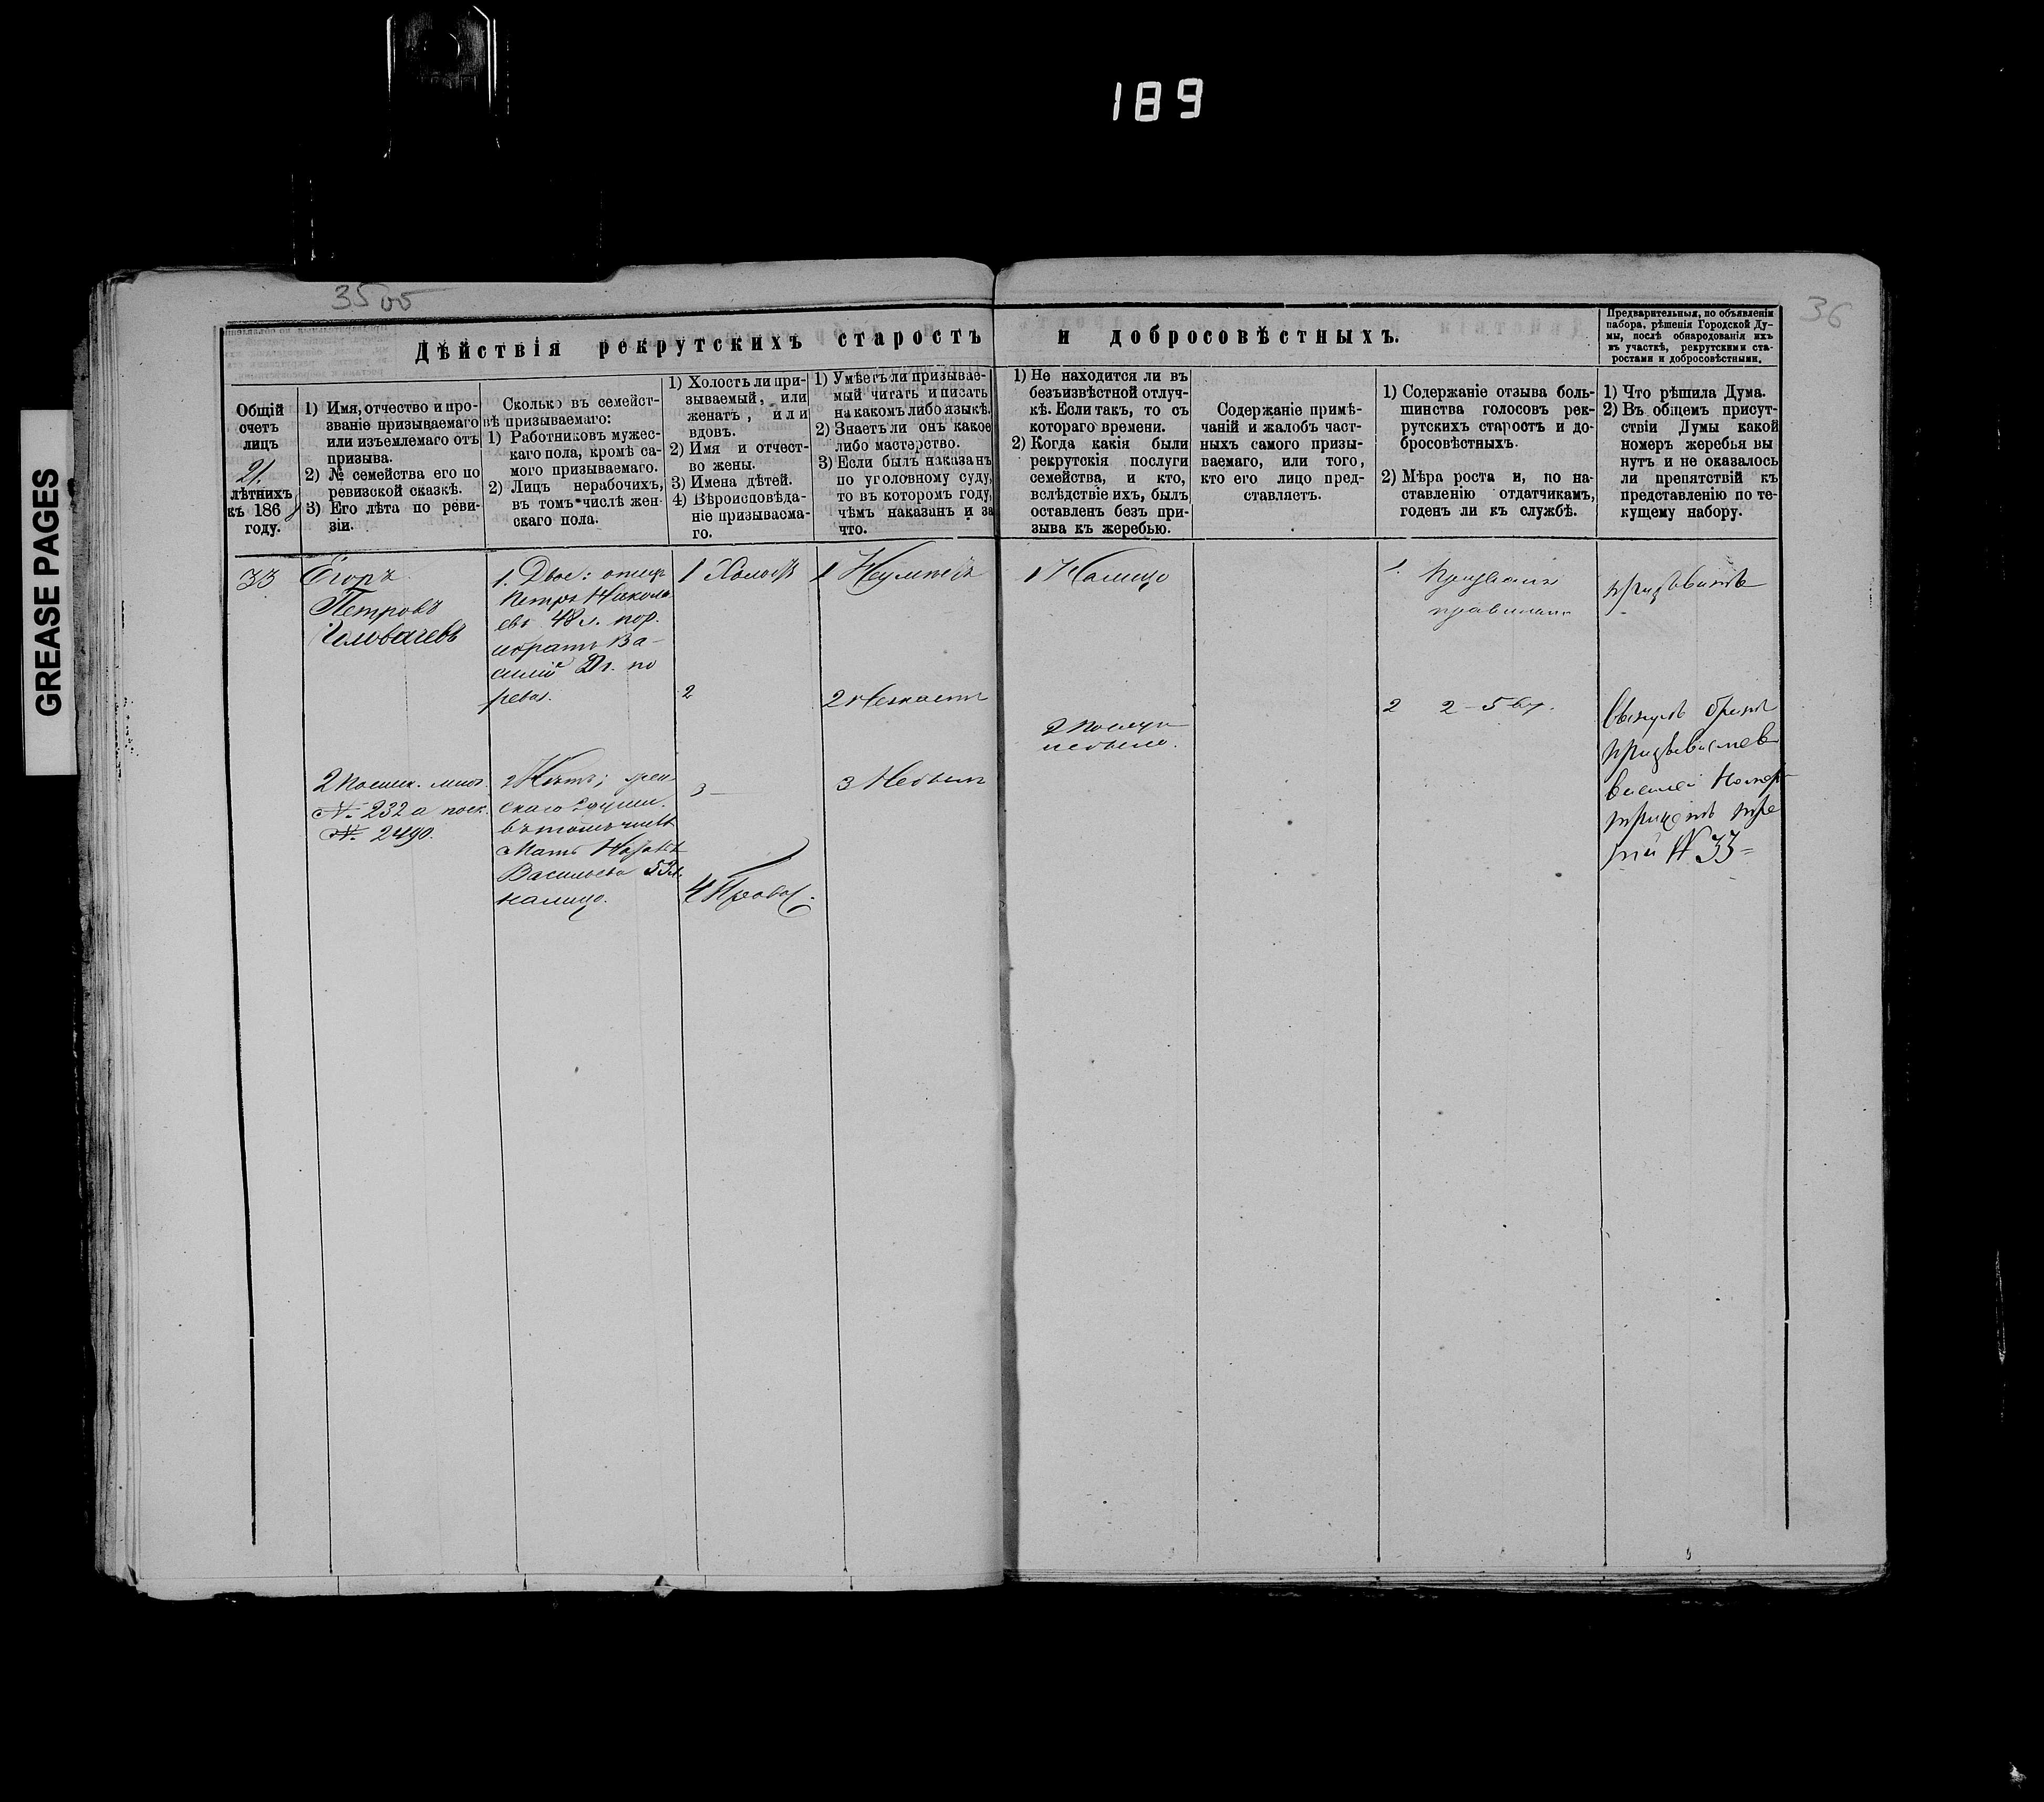 189
GREASE PAGES
35 об
36
Дѣйствія рекрутскихъ старостъ и добросовѣстныхъ.
Предварительныя, по объявленіи
набора, рѣшенія Городской Ду-
мы, послѣ обнародованія ихъ
въ участкѣ, рекрутскими ста-
ростами и добросовѣстными.
Общій
счетъ
лицъ
21
лѣтнихъ
къ 186
году.
1) Имя, отчество и про-
званіе призываемаго
или изъемлемаго отъ
призыва.
2) № семейства его по
ревизской сказкѣ.
3) Его лѣта по реви-
зіи.
Сколько въ семейст-
вѣ призываемаго:
1) Работниковъ мужес-
каго пола, кромѣ са-
мого призываемаго.
2) Лицъ нерабочихъ,
въ томъ числѣ жен-
скаго пола.
1) Холостъ ли при-
зываемый, или
женатъ, или
вдовъ.
2) Имя и отчест-
во жены.
3) Имена дѣтей.
4) Вѣроисповѣда-
ніе призываема-
го.
1) Умѣетъ ли призывае-
мый читать и писать
на какомъ либо языкѣ.
2) Знаетъ ли онъ какое
либо мастерство.
3) Если былъ наказанъ
по уголовному суду,
то въ которомъ году,
чѣмъ наказанъ и за
что.
1) Не находится ли въ
безъизвѣстной отлуч-
кѣ. Если такъ, то съ
котораго времени.
2) Когда какія были
рекрутскія послуги
семейства, и кто,
вслѣдствіе ихъ, былъ
оставленъ безъ при-
зыва къ жеребью.
Содержаніе примѣ-
чаній и жалобъ част-
ныхъ самого призы-
ваемаго, или того,
кто его лицо пред-
ставляетъ.
1) Содержаніе отзыва боль-
шинства голосовъ рек-
рутскихъ старостъ и до-
бросовѣстныхъ.
2) Мѣра роста и, по на-
ставленію отдатчикамъ,
годенъ ли къ службѣ.
1) Что рѣшила Дума.
2) Въ общемъ присут-
ствіи Думы какой
номеръ жеребья вы
нутъ и не оказалось
ли препятствій къ
представленію по те-
кущему набору.
33
Егоръ
Петровъ
Головачевъ
2 мѣщ.
№ 232 а
№ 2490.
1. Двое: отецъ
Петръ Николь
евъ 48 л. пор.
и братъ Ва-
силій по
ревиз.
2 Нѣтъ; жен
скаго 2 души.
въ томъ числѣ
Мать
Васильева 53 л.
налицо.
1 Холостъ
2
3 —
4 Правос.
1 Неумѣетъ
2 Незнаетъ
3 Небылъ
1 Налицо
2 Послугъ
небыло.
1. Призванъ
правильно
2 2 – 5 6/8.
призывать
Вынулъ братъ
призываемаго
Василій Номеръ
тридцать тре
тій № 33 =